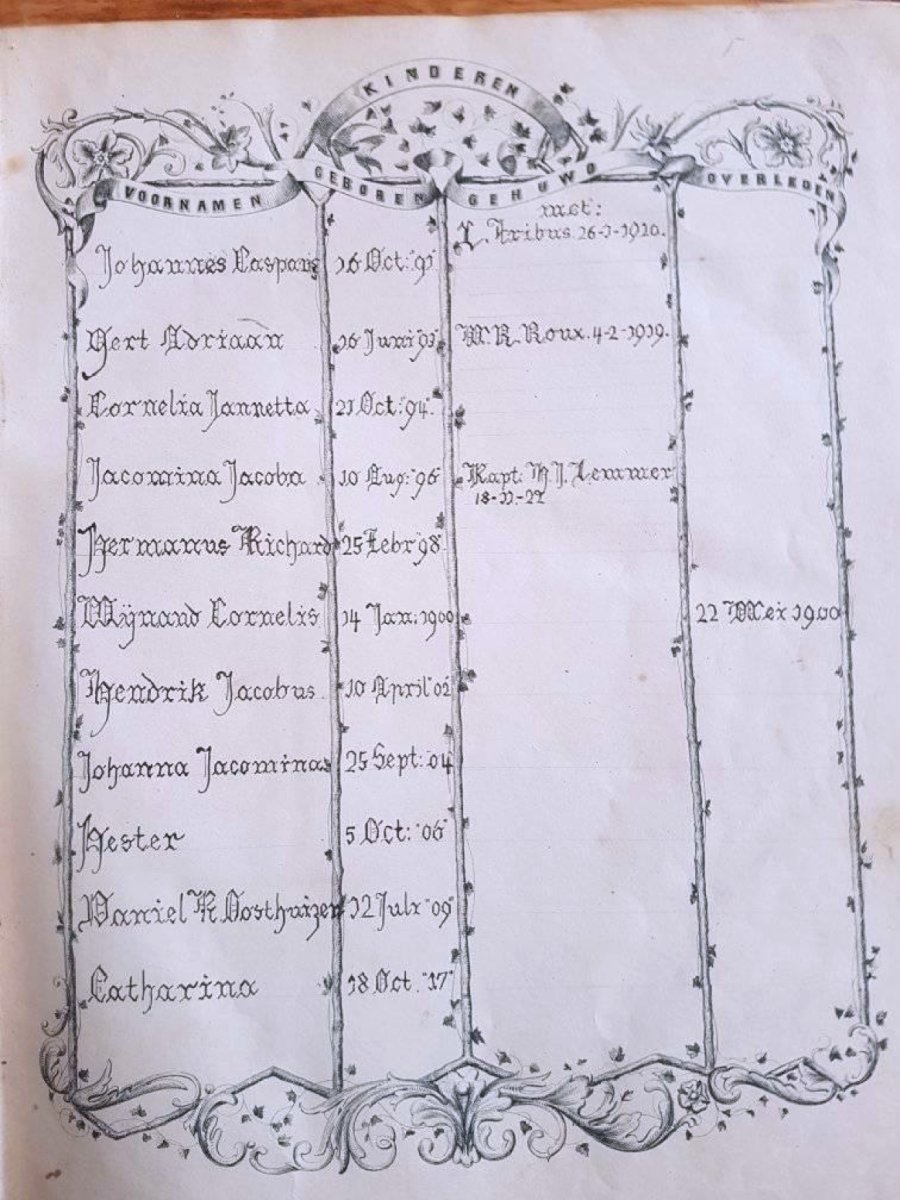 KINDEREN
VOORNAMEN GEBOREN GEHUWD OVERLEDEN
met:
Johannes Casparus 16 Oct: '91 L. Fribus. 26-1-1920.
Gert Adriaan 16 Juni '93 W. R. Roux. 4-2-1919.
Cornelia Jannetta 21 Oct: '94.
Jacomina Jacoba 10 Aug: '96 Kapt. H. J. Lemmer
18-11-22
Hermanus Richard 25 Febr '98
Wÿnand Cornelis 14 Jan: 1900 22 Mei 1900
Hendrik Jacobus 10 April '02
Johanna Jacomina 25 Sept: '04
Hester 5 Oct: '06
Daniel R Oosthuizen 12 Juli '09
Catharina 18 Oct. '17